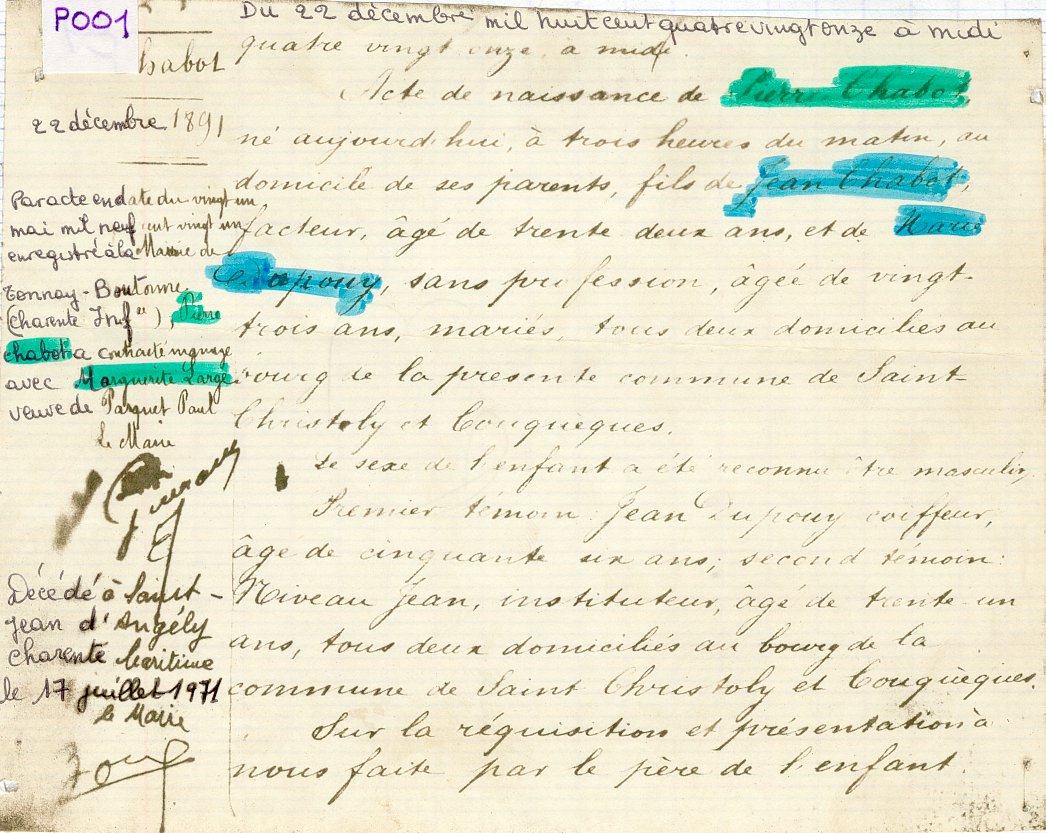 P001
Chabot
22 décembre 1891
Par acte en date du vingt un
mai mil neuf cent vingt un
enregistré à la Mairie de
Tonnay-Boutonne
(Charente Infre), Pierre
Chabot a contracté mariage
avec Marguerite Large
veuve de Parquet Paul
Le Maire
Décédé à Saint-
Jean d'Angély
Charente Maritime
le 17 juillet 1971
Le Maire
Du 22 décembre mil huit cent quatre vingt onze à midi
quatre vingt onze, à midi.
Acte de naissance de Pierre Chabot,
né aujourd'hui, à trois heures du matin, au
domicile de ses parents, fils de Jean Chabot,
facteur, âgé de trente deux ans, et de Marie
Dupouy, sans profession, âgée de vingt-
trois ans, mariés, tous deux domiciliés au
bourg de la présente commune de Saint-
Christoly et Couquèques.
Le sexe de l'enfant a été reconnu être masculin,
Premier témoin: Jean Dupouy coiffeur,
âgé de cinquante six ans; second témoin:
Niveau Jean, instituteur, âgé de trente-un
ans, tous deux domiciliés au bourg de la
commune de Saint Christoly et Couquèques.
Sur la réquisition et présentation à
nous faite par le père de l'enfant.